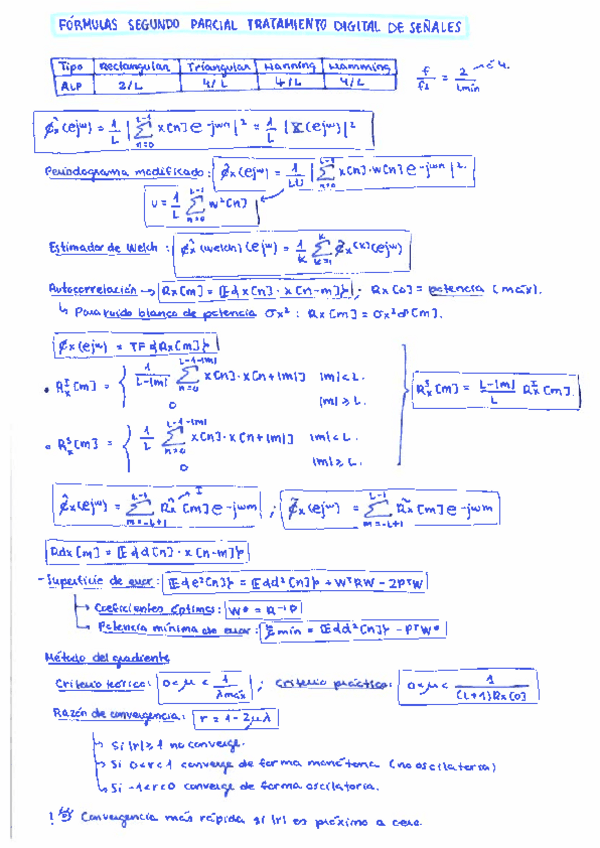 FÓRMULAS SEGUNDO PARCIAL TRATAMIENTO DIGITAL DE SEÑALES
Tipo | Rectangular | Triangular | Hanning | Hamming
ALP | 2/L | 4/L | 4/L | 4/L
f/fs = 2/Lmin
φ̂x(e^jω) = 1/L |Σ_{n=0}^{L-1} x[n] e^-jωn|² = 1/L |X(e^jω)|²
Periodograma modificado: φ̃x(e^jω) = 1/LU |Σ_{n=0}^{L-1} x[n]·w[n] e^-jωn|².
U = 1/L Σ_{n=0}^{L-1} w²[n]
Estimador de Welch: φ̂x(welch)(e^jω) = 1/K Σ_{k=1}^{K} φ̃x^(k)(e^jω)
Autocorrelación → Rx[m] = E{x[n]·x[n-m]}; Rx[0] = potencia (máx).
↳ Para ruido blanco de potencia σx²: Rx[m] = σx²δ[m].
φx(e^jω) = TF{Rx[m]}
• R̂x^I[m] = { 1/(L-|m|) Σ_{n=0}^{L-1-|m|} x[n]·x[n+|m|] |m|<L.
0 |m|≥L.
• R̂x^S[m] = { 1/L Σ_{n=0}^{L-1-|m|} x[n]·x[n+|m|] |m|<L.
0 |m|≥L.
R̂x^S[m] = (L-|m|)/L R̂x^I[m].
φ̂x(e^jω) = Σ_{m=-L+1}^{L-1} R̂x^I[m] e^-jωm ; φ̃x(e^jω) = Σ_{m=-L+1}^{L-1} R̃x[m] e^-jωm
Rdx[m] = E{d[n]·x[n-m]}
-Superficie de error: E{e²[n]} = E{d²[n]} + WᵀRW - 2PᵀW
→ Coeficientes óptimos: W* = R⁻¹P
→ Potencia mínima de error: ξmin = E{d²[n]} - PᵀW*
Método del gradiente
Criterio teórico: 0<μ<1/λmáx ; criterio práctico: 0<μ<1/((L+1)Rx[0])
Razón de convergencia: r = 1-2μλ
→ Si |r|≥1 no converge.
→ Si 0<r<1 converge de forma monótona (no oscilatoria)
→ Si -1<r<0 converge de forma oscilatoria.
Convergencia más rápida si |r| es próximo a cero.